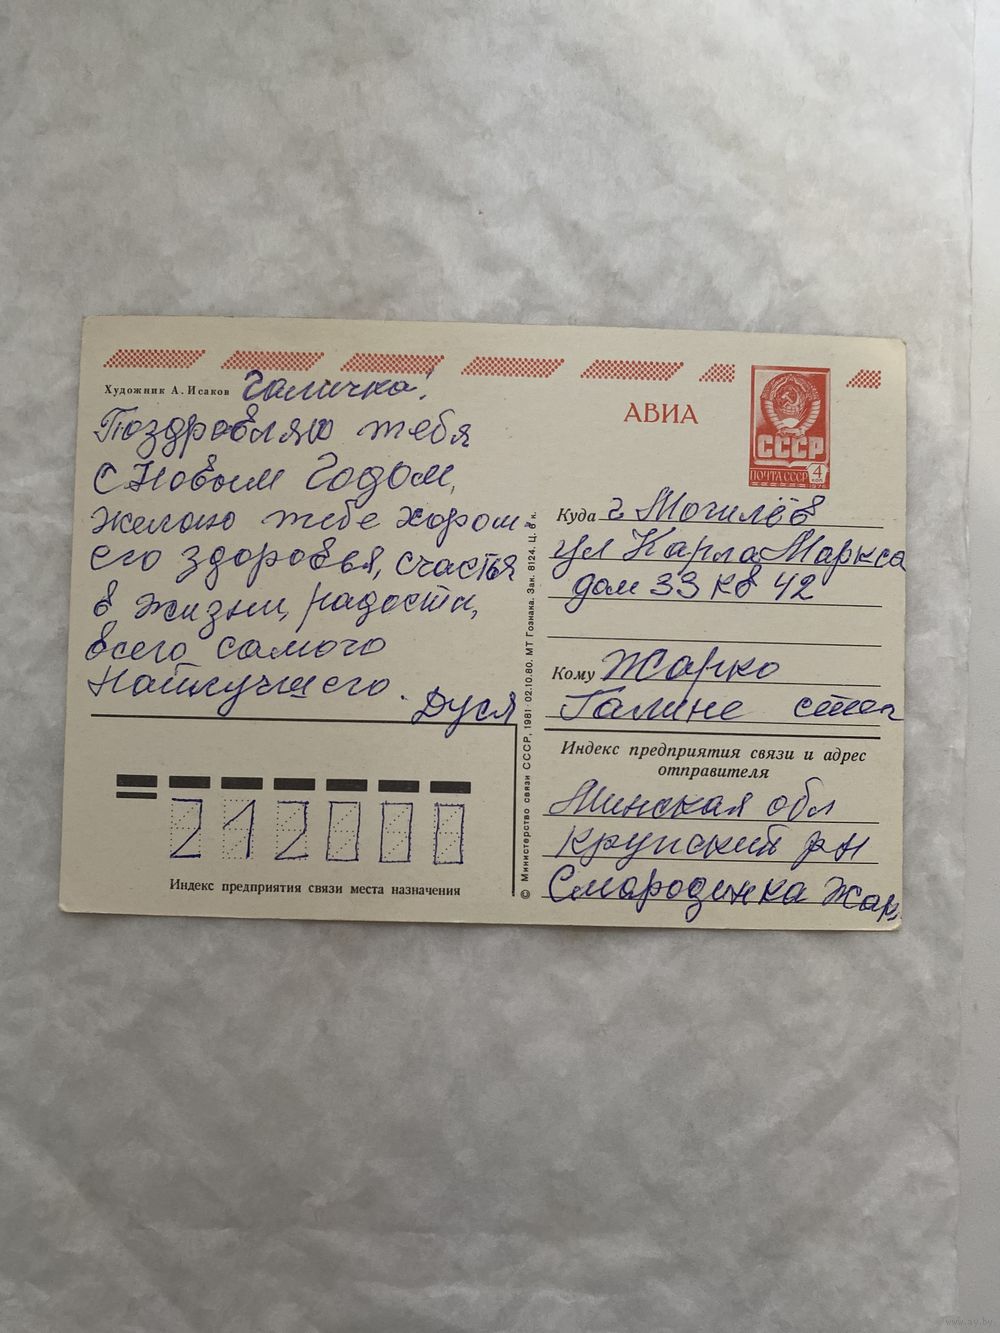 Художник А. Исаков
Галичка!
Поздровляю тебя
с Новым Годом,
желаю тебе хорош
его здоровья, счастья
в жизни, радости,
всего самого
Наилучшего.
Дуся
212000
Индекс предприятия связи места назначения
© Министерство связи СССР, 1981 · 02.10.80. МТ Гознака. Зак. 8124. Ц. 6 к.
АВИА
СССР
ПОЧТА СССР
4
КОП
1976
Куда г. Могилёв
ул Карла Маркса
дом 33 кв 42
Кому Жарко
Галине
Индекс предприятия связи и адрес
отправителя
Минская обл
Крупский рн
Смародинка Жар
www.ay.by